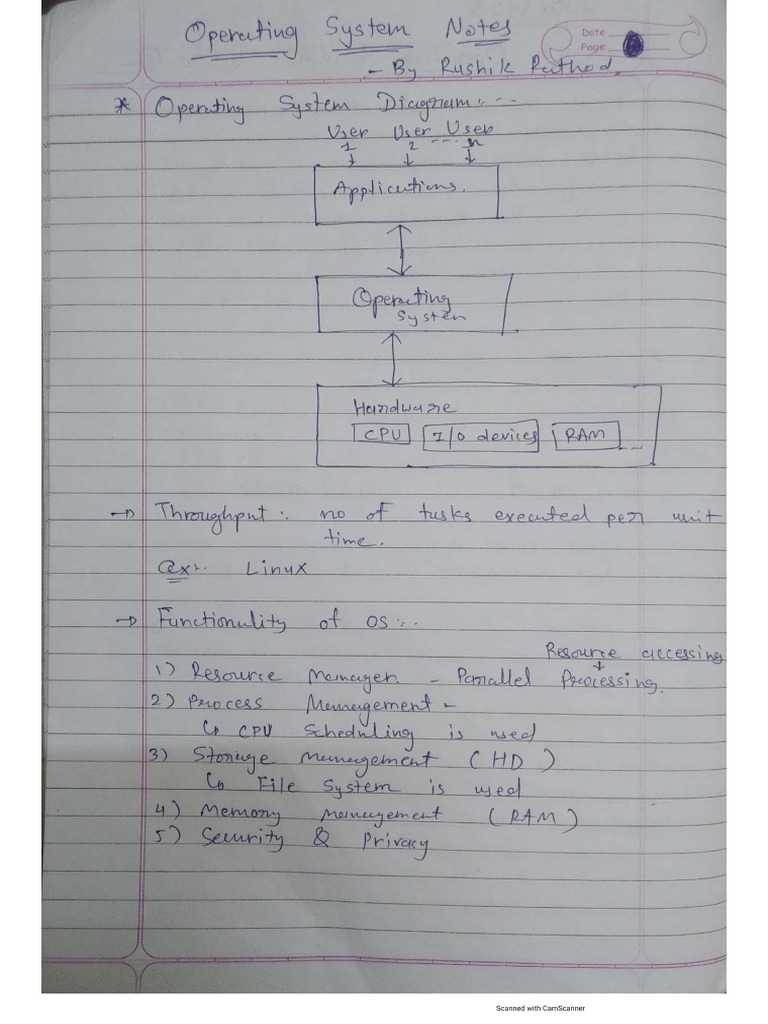 Operating System Notes
Date
Page
- By Rushik Rathod.
* Operating System Diagram:--
User User User
1 2 ---- n
Applications.
Operating
System
Hardware
CPU I/O devices RAM
→ Throughput:. no of tasks executed per unit
time.
ex:. Linux
→ Functionality of OS:.
Resource accessing
1) Resource Manager. - Parallel Processing.
2) Process Management -
↳ CPU Scheduling is used
3) Storage Management (HD)
↳ File System is used
4) Memory Management (RAM)
5) Security & Privacy
Scanned with CamScanner